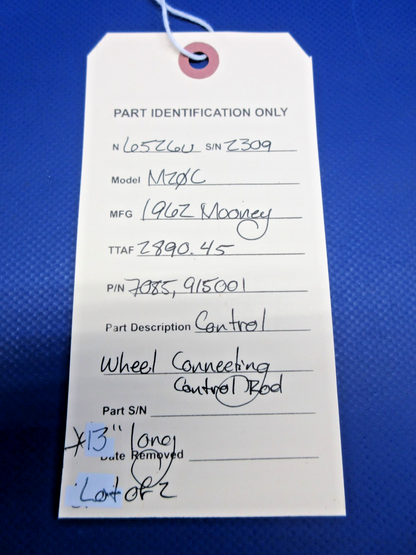 PART IDENTIFICATION ONLY
N 6526U S/N 2309
Model M20C
MFG 1962 Mooney
TTAF 2890.45
P/N 7085, 915001
Part Description Control
Wheel Connecting
Control Rod
Part S/N
*13" long
Date Removed
Lot of 2